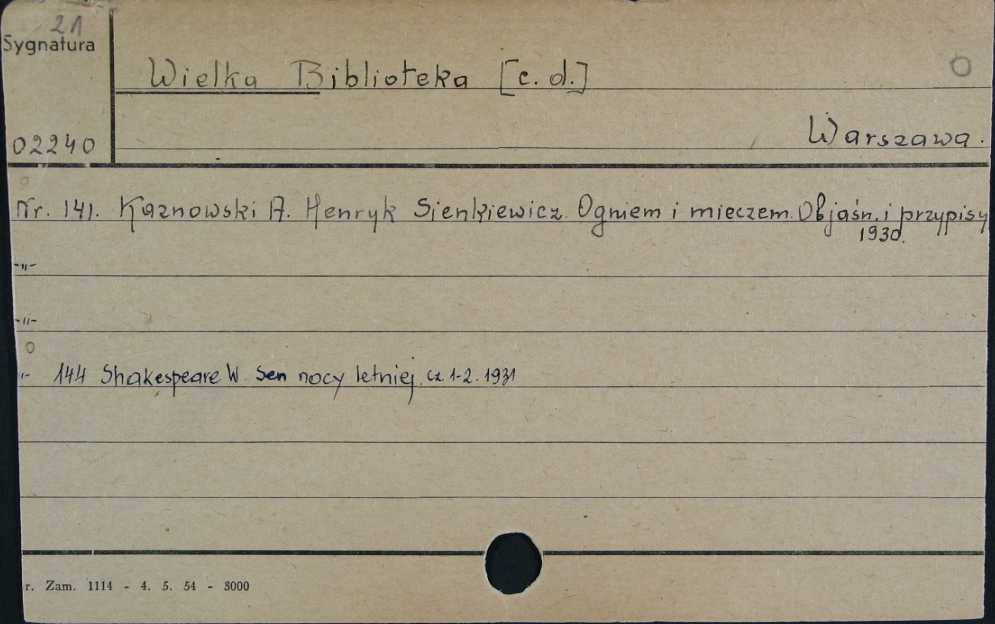 21
Sygnatura
Wielka Biblioteka [c. d.]
02240
Warszawa.
Nr. 141. Kaznowski A. Henryk Sienkiewicz. Ogniem i mieczem. Objaśn. i przypisy
1930.
-"-
-"-
"- 144 Shakespeare W. Sen nocy letniej. cz. 1-2. 1931
r. Zam. 1114 - 4. 5. 54 - 3000